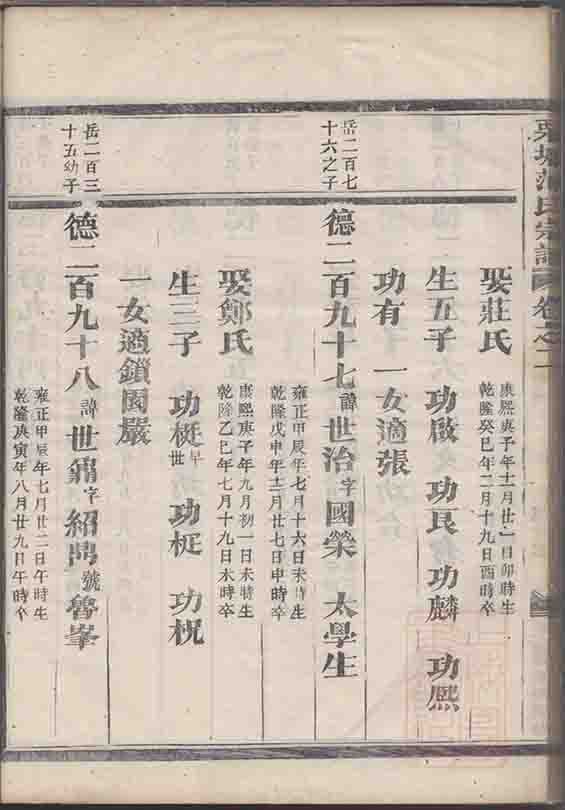 宗譜 卷之二
娶莊氏 康熙庚子年十一月廿一日卯時生 乾隆癸巳年二月十九日酉時卒
生五子 功啟 功良 功麟 功熙
功有 一女適張
岳二百七十六之子
德二百九十七 諱世治 字國榮 太學生
雍正甲辰年七月十六日未時生 乾隆戊申年十二月廿七日申時卒
娶鄭氏 康熙庚子年九月初一日未時生 乾隆乙巳年七月十九日未時卒
生三子 功梃早世 功梃 功柷
一女適鎖園嚴
岳二百三十五幼子
德二百九十八 諱世鼐 字紹禼 號魯峯
雍正甲辰年七月廿二日午時生 乾隆庚寅年八月廿九日午時卒